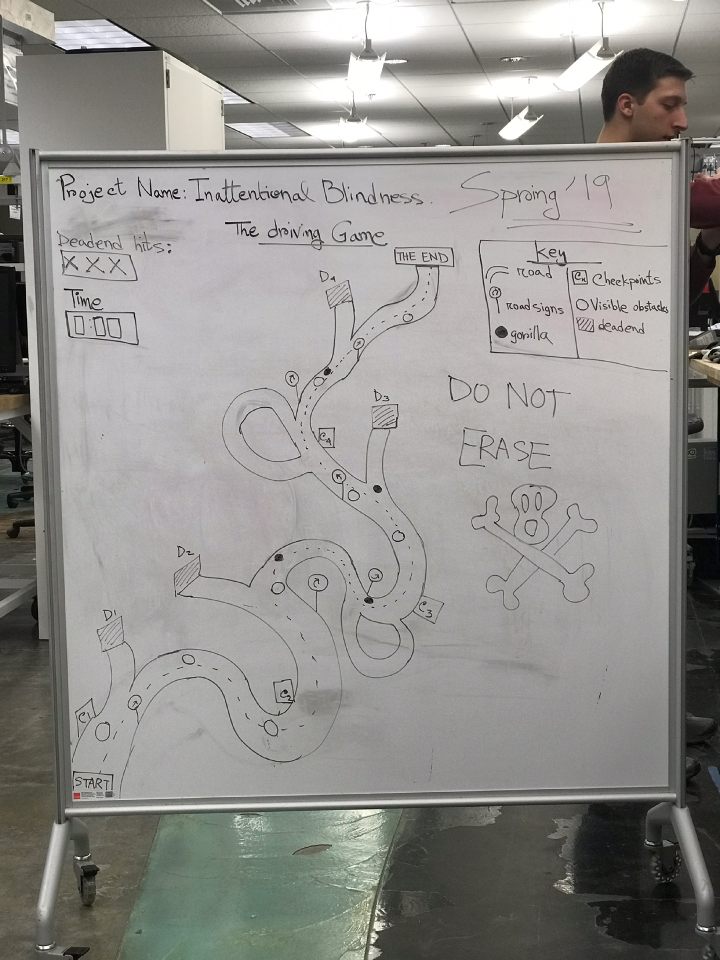 Project Name: Inattentional Blindness.
Spring '19
The driving Game
Deadend hits:
X X X
Time
0:00
THE END
Key
road
roadsigns
gorilla
Cn Checkpoints
Visible obstacles
deadend
D4
D3
C4
DO NOT
ERASE
D2
C3
D1
C2
C1
START